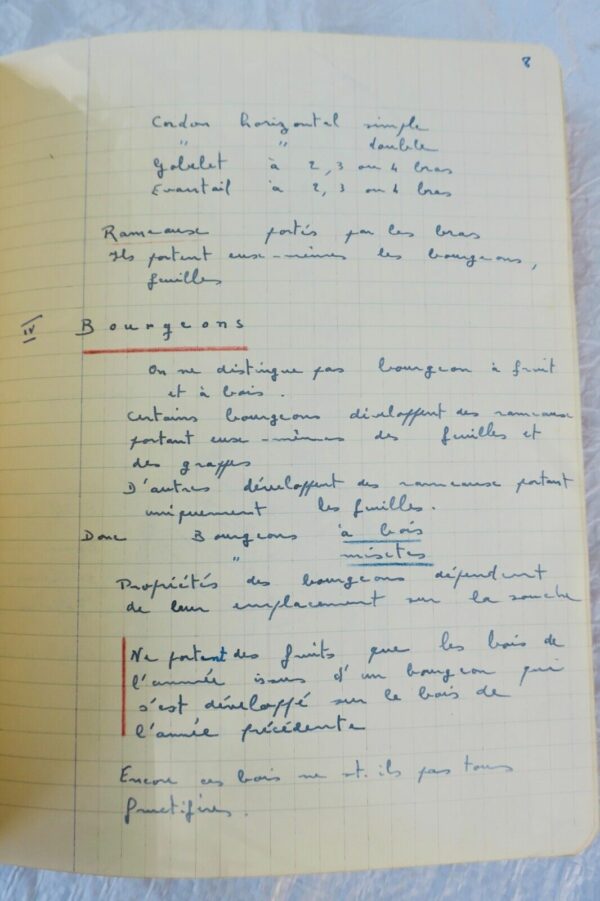 8
Cordon horizontal simple
" " double
Gobelet à 2, 3 ou 4 bras
Evantail à 2, 3 ou 4 bras
Rameaux portés par les bras
Ils portent eux-mêmes les bourgeons,
feuilles
IV Bourgeons
On ne distingue pas bourgeon à fruit
et à bois.
Certains bourgeons développent des rameaux
portant eux-mêmes des feuilles et
des grappes
D'autres développent des rameaux portant
uniquement les feuilles.
Donc Bourgeons à bois
" mixtes
Propriétés des bourgeons dépendent
de leur emplacement sur la souche
Ne portent des fruits que les bois de
l'année issus d'un bourgeon qui
s'est développé sur le bois de
l'année précédente
Encore ces bois ne st. ils pas tous
fructifères.